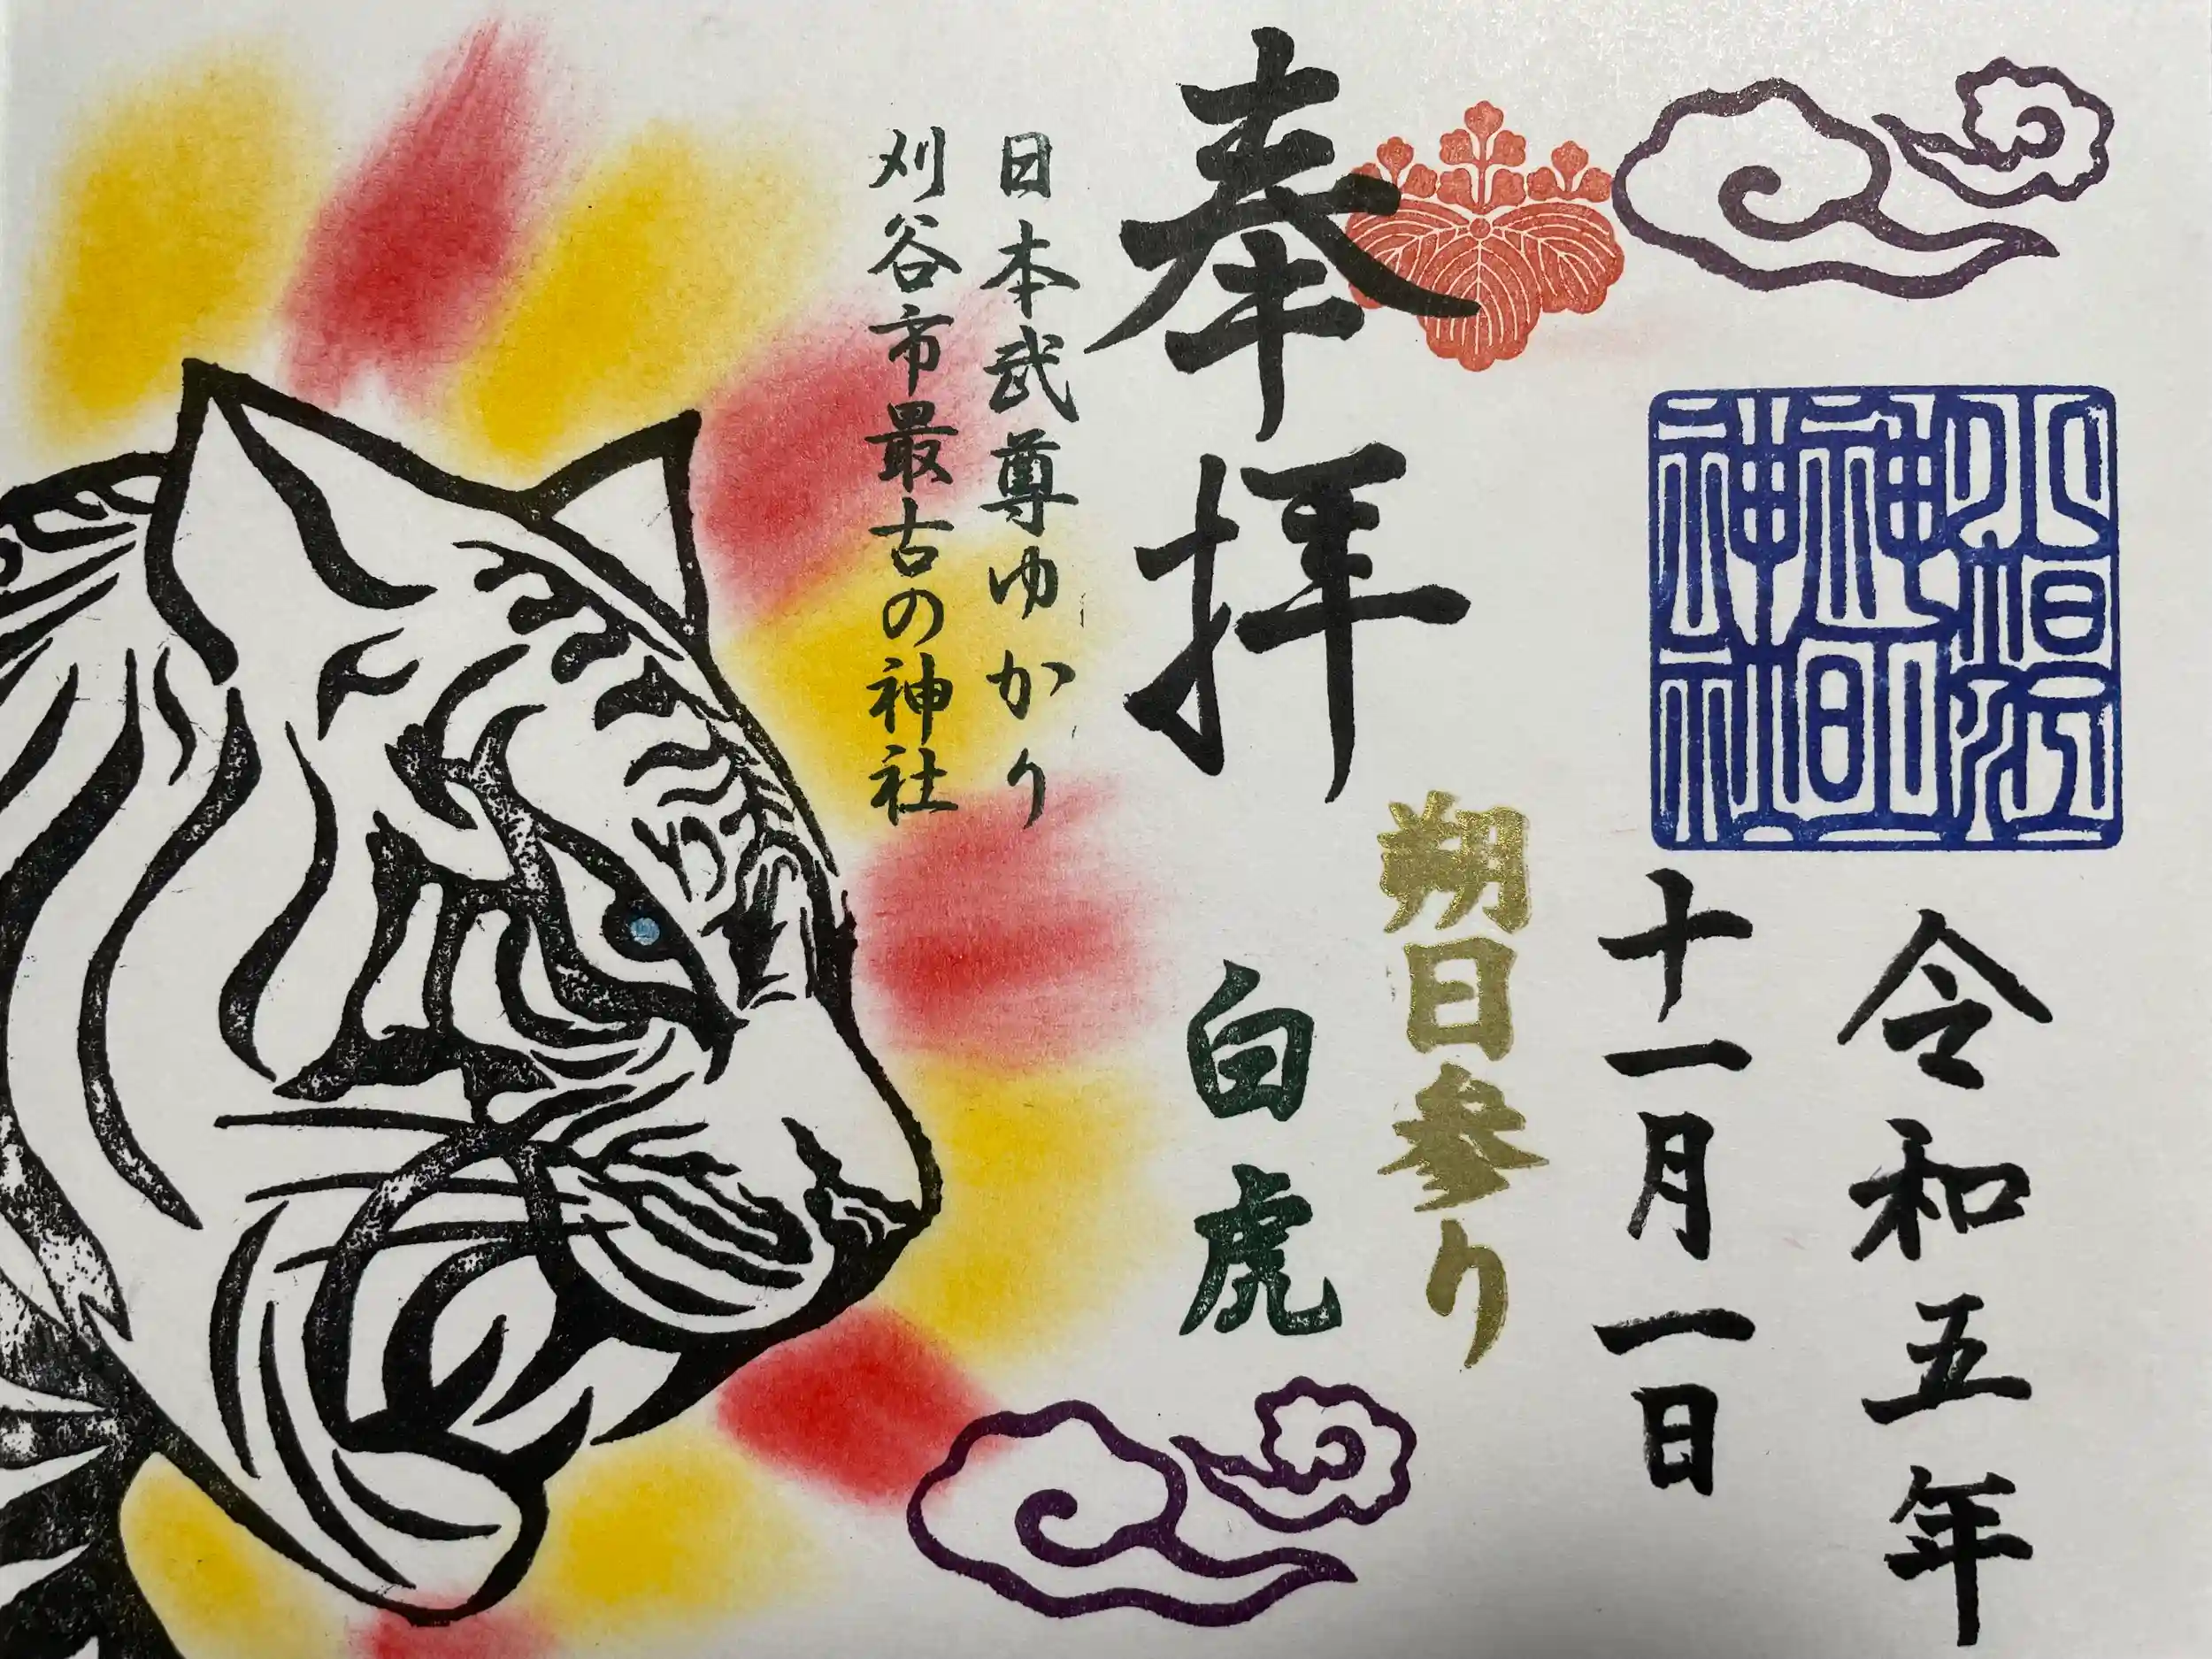 小垣江
神明
神社
令和五年
十一月一日
朔日参り
奉拝
白虎
日本武尊ゆかり
刈谷市最古の神社